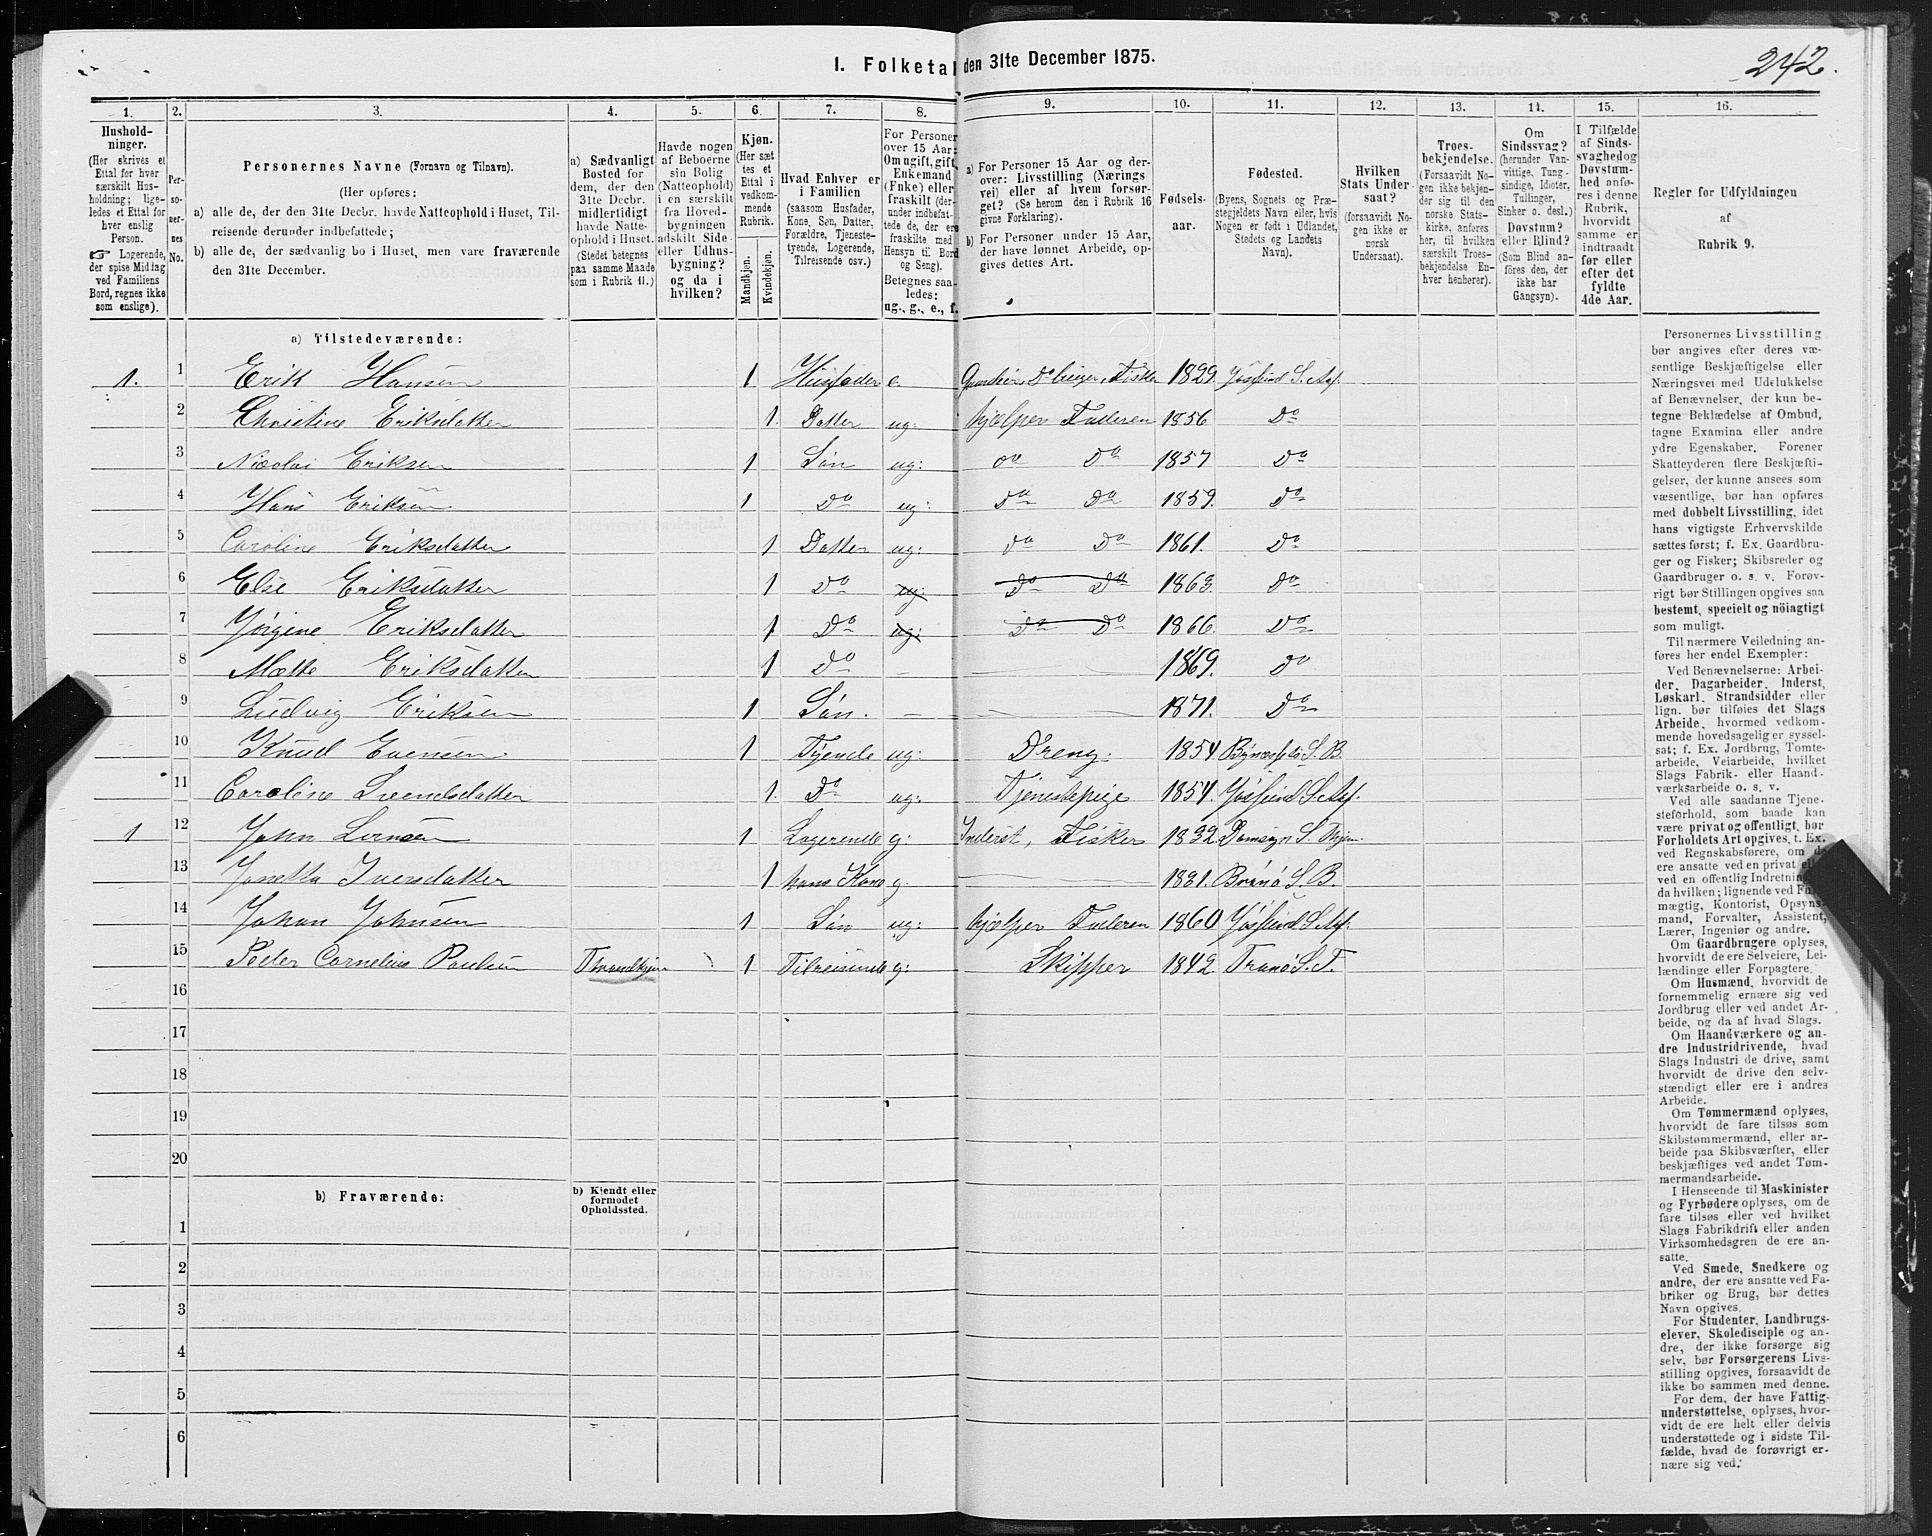 242.
I. Folketal den 31te December 1875.
1. 2. 3. 4. 5. 6. 7. 8. 9. 10. 11. 12. 13. 14. 15. 16.
Hushold-
ninger.
(Her skrives et
Ettal for hver
særskilt Hus-
holdning; lige-
ledes et Ettal for
hver enslig
Person.
☞ Logerende,
der spise Middag
ved Familiens
Bord, regnes ikke
som enslige).
Per-
so-
ner-
nes
No.
Personernes Navne (Fornavn og Tilnavn).
(Her opføres:
a) alle de, der den 31te Decbr. havde Natteophold i Huset, Til-
reisende derunder indbefattede;
b) alle de, der sædvanlig bo i Huset, men vare fraværende
den 31te December.
a) Sædvanligt
Bosted for
dem, der den
31te Decbr.
midlertidigt
havde Natte-
ophold i Huset.
(Stedet betegnes
paa samme Maade
som i Rubrik 11.)
Havde nogen
af Beboerne
sin Bolig
(Natteophold)
i en særskilt
fra Hoved-
bygningen
adskilt Side-
eller Udhus-
bygning?
og da i
hvilken?
Kjøn.
(Her sæt-
tes et
Ettal i
vedkom-
mende
Rubrik.
Mandkjøn.
Kvindekjøn.
Hvad Enhver er
i Familien
(saasom Husfader,
Kone, Søn, Datter,
Forældre, Tjeneste-
tyende, Logerende,
Tilreisende osv.)
For Personer
over 15 Aar:
Om ugift, gift,
Enkemand
(Enke) eller
fraskilt (der-
under indbefat-
tede de, der ere
fraskilte med
Hensyn til Bord
og Seng).
Betegnes saa-
ledes:
ug., g., e., f.
a) For Personer 15 Aar og der-
over: Livsstilling (Nærings
vei) eller af hvem forsør-
get? (Se herom den i Rubrik 16
givne Forklaring).
b) For Personer under 15 Aar,
der have lønnet Arbeide, op-
gives dettes Art.
Fødsels-
aar.
Fødested.
(Byens, Sognets og Præ-
stegjeldets Navn eller, hvis
Nogen er født i Udlandet,
Stedets og Landets
Navn).
Hvilken
Stats Under-
saat?
(forsaavidt No-
gen ikke er
norsk
Undersaat).
Troes-
bekjendelse.
(Forsaavidt No-
gen ikke bekjen-
der sig til den
norske Stats-
kirke, anføres
her, til hvilken
særskilt Troes-
bekjendelse En-
hver henhører).
Om
Sindssvag?
(herunder Van-
vittige, Tung-
sindige, Idioter,
Tullinger,
Sinker o. desl.)
Døvstum?
eller Blind?
(Som Blind an-
føres den, der
ikke har
Gangsyn).
I Tilfælde
af Sinds-
svaghed og
Døvstum-
hed anfø-
res i denne
Rubrik,
hvorvidt
samme er
indtraadt
før eller
efter det
fyldte
4de Aar.
Regler for Udfyldningen
af
Rubrik 9.
a) Tilstedeværende:
1. 1 Erik Hansen 1 Husfader e. Gaardeier, Fisker 1829. S. Alst.
2 Christine Eriksdatter 1. Datter ug: hjælper Faderen 1856 Do
3 Nicolai Eriksen 1 Søn ug: Do Do 1857 Do
4 Hans Eriksen 1 Do ug: Do Do 1859. Do
5 Caroline Eriksdatter 1 Datter ug: Do Do 1861. Do
6 Else Eriksdatter 1 Do ug: Do Do 1863. Do
7 Jørgine Eriksdatter 1 Do ug: Do Do 1866. Do
8 Mette Eriksdatter 1 Do 1869. Do
9 Ludvig Eriksen 1 Søn. 1871. Do
10 Knud Evensen 1 Tyende ug: Dreng. 1854. S. B.
11 Caroline Svendsdatter 1. Do ug: Tjenestepige 1854.
1 12 John 1 Logerende g: Inderst, Fisker 1832.
13 Janetta Iversdatter 1 hans Kone g. 1831. Brønø S. B.
14 Johan Johnsen 1 Søn ug: hjælper Faderen 1860
15 Peder Cornelius Paulsen 1 Tilreisende g: Skipper 1842. Tranø S. T.
16
17
18
19
20
b) Fraværende:
b) Kjendt eller
formodet
Opholdssted.
1
2
3
4
5
6
Personernes Livsstilling
bør angives efter deres væ-
sentlige Beskjæftigelse eller
Næringsvei med Udelukkelse
af Benævnelser, der kun be-
tegne Beklædelse af Ombud,
tagne Examina eller andre
ydre Egenskaber. Forener
Skatteyderen flere Beskjæfti-
gelser, der kunne ansees som
væsentlige, bør han opføres
med dobbelt Livsstilling, idet
hans vigtigste Erhvervskilde
sættes først; f. Ex. Gaardbru-
ger og Fisker; Skibsreder og
Gaardbruger o. s. v. Forøv-
rigt bør Stillingen opgives saa
bestemt, specielt og nöiagtigt
som muligt.
Til nærmere Veiledning an-
føres her endel Exempler:
Ved Benævnelserne: Arbei-
der, Dagarbeider, Inderst,
Løskarl, Strandsidder eller
lign. bør tilføies det Slags
Arbeide, hvormed vedkom-
mende hovedsagelig er syssel-
sat; f. Ex. Jordbrug, Tomte-
arbeide, Veiarbeide, hvilket
Slags Fabrik- eller Haand-
værksarbeide o. s. v.
Ved alle saadanne Tjene-
steforhold, som baade kan
være privat og offentligt, bør
Forholdets Art opgives, t. Ex.
ved Regnskabsførere, om de
ere ansatte ved en privat eller
ved en offentlig Indretning og
da hvilken; lignende ved Fuld-
mægtig, Kontorist, Opsyns-
mand, Forvalter, Assistent,
Lærer, Ingeniør og andre.
Om Gaardbrugere oplyses,
hvorvidt de ere Selveiere, Lei-
lændinge eller Forpagtere.
Om Husmænd, hvorvidt de
fornemmelig ernære sig ved
Jordbrug eller ved andet Ar-
beide, og da af hvad Slags.
Om Haandværkere og an-
dre Industridrivende, hvad
Slags Industri de drive, samt
hvorvidt de drive den selv-
stændigt eller ere i andres
Arbeide.
Om Tømmermænd oplyses,
hvorvidt de fare tilsøs som
Skibstømmermænd, eller ar-
beide paa Skibsværfter, eller
beskjæftiges ved andet Tøm-
mermandsarbeide.
I Henseende til Maskinister
og Fyrbødere oplyses, om de
fare tilsøs eller ved hvilket
Slags Fabrikdrift eller anden
Virksomhedsgren de ere an-
satte.
Ved Smede, Snedkere og
andre, der ere ansatte ved Fa-
briker og Brug, bør dettes
Navn opgives.
For Studenter, Landbrugs-
elever, Skoledisciple og an-
dre, der ikke forsørge sig
selv, bør Forsørgerens Livs-
stilling opgives, forsaavidt de
ikke bo sammen med denne.
For dem, der have Fattig-
understøttelse, oplyses, hvor-
vidt de ere helt eller delvis
understøttede og i sidste Til-
fælde, hvad de forøvrigt er-
nære sig ved.